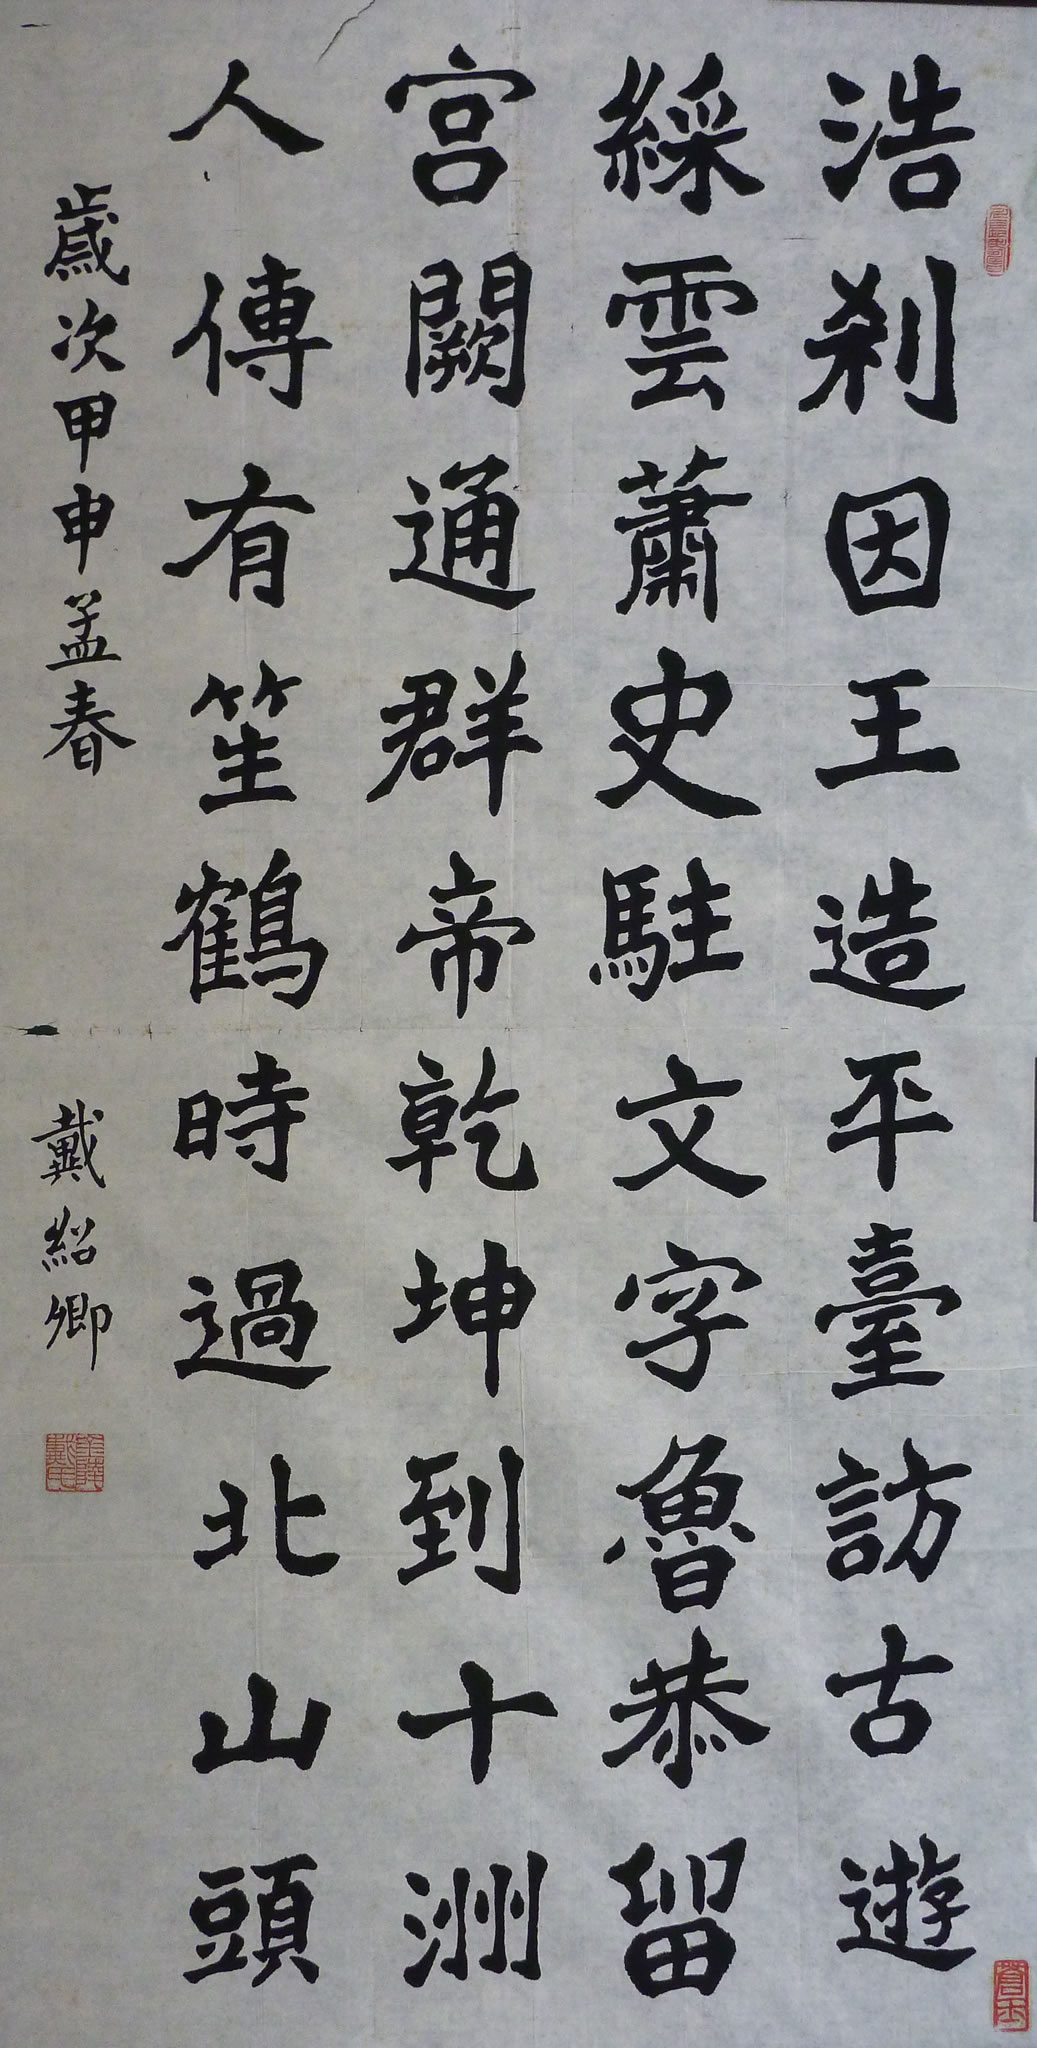 浩刹因王造平臺訪古遊
綵雲蕭史駐文字魯恭留
宮闕通群帝乾坤到十洲
人傳有笙鶴時過北山頭
歲次甲申孟春
戴紹卿